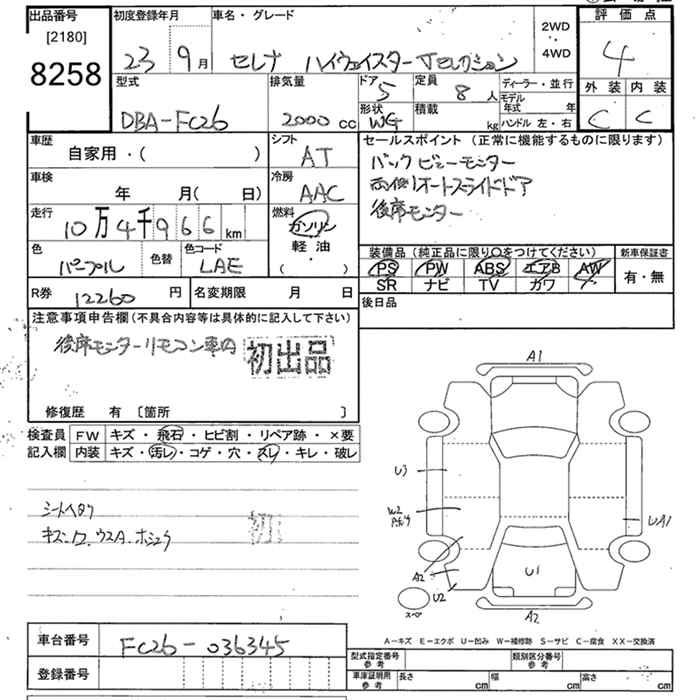 出品番号
[2180]
8258
初度登録年月
23 9月
車名・グレード
セレナ ハイウェイスターVセレクション
2WD
・
4WD
評価点
4
外装 内装
C C
型式
DBA-FC26
排気量
2000 cc
ドア
5
形状
WG
定員
8人
積載
kg
ディーラー・並行
モデル年式 年
ハンドル 左・右
車歴
自家用・( )
シフト
AT
車検
年 月( 日)
冷房
AAC
走行
10万4千966km
燃料
ガソリン
軽油
( ・ )
色
パープル
色替
色コード
LAE
R券
12260円
名変期限 月 日
セールスポイント(正常に機能するものに限ります)
バックビューモニター
両側オートスライドドア
後席モニター
装備品(純正品に限り○をつけてください)
PS PW ABS エアB AW
SR ナビ TV カワ
新車保証書
有・無
後日品
注意事項申告欄(不具合内容等は具体的に記入して下さい)
後席モニターリモコン車内
初出品
修復歴 有 [箇所 ]
検査員記入欄
FW キズ・飛石・ヒビ割・リペア跡・×要
内装 キズ・汚レ・コゲ・穴・スレ・キレ・破レ
シートヘタリ
A1
U3
W2
UA1
A2
U2
U1
A2
スペア
A-キズ E-エクボ U-凹み W-補修跡 S-サビ C-腐食 XX-交換済
車台番号
FC26-036345
登録番号
型式指定番号
参考
類別区分番号
参考
車庫証明用
参考
長さ cm
幅 cm
高さ cm